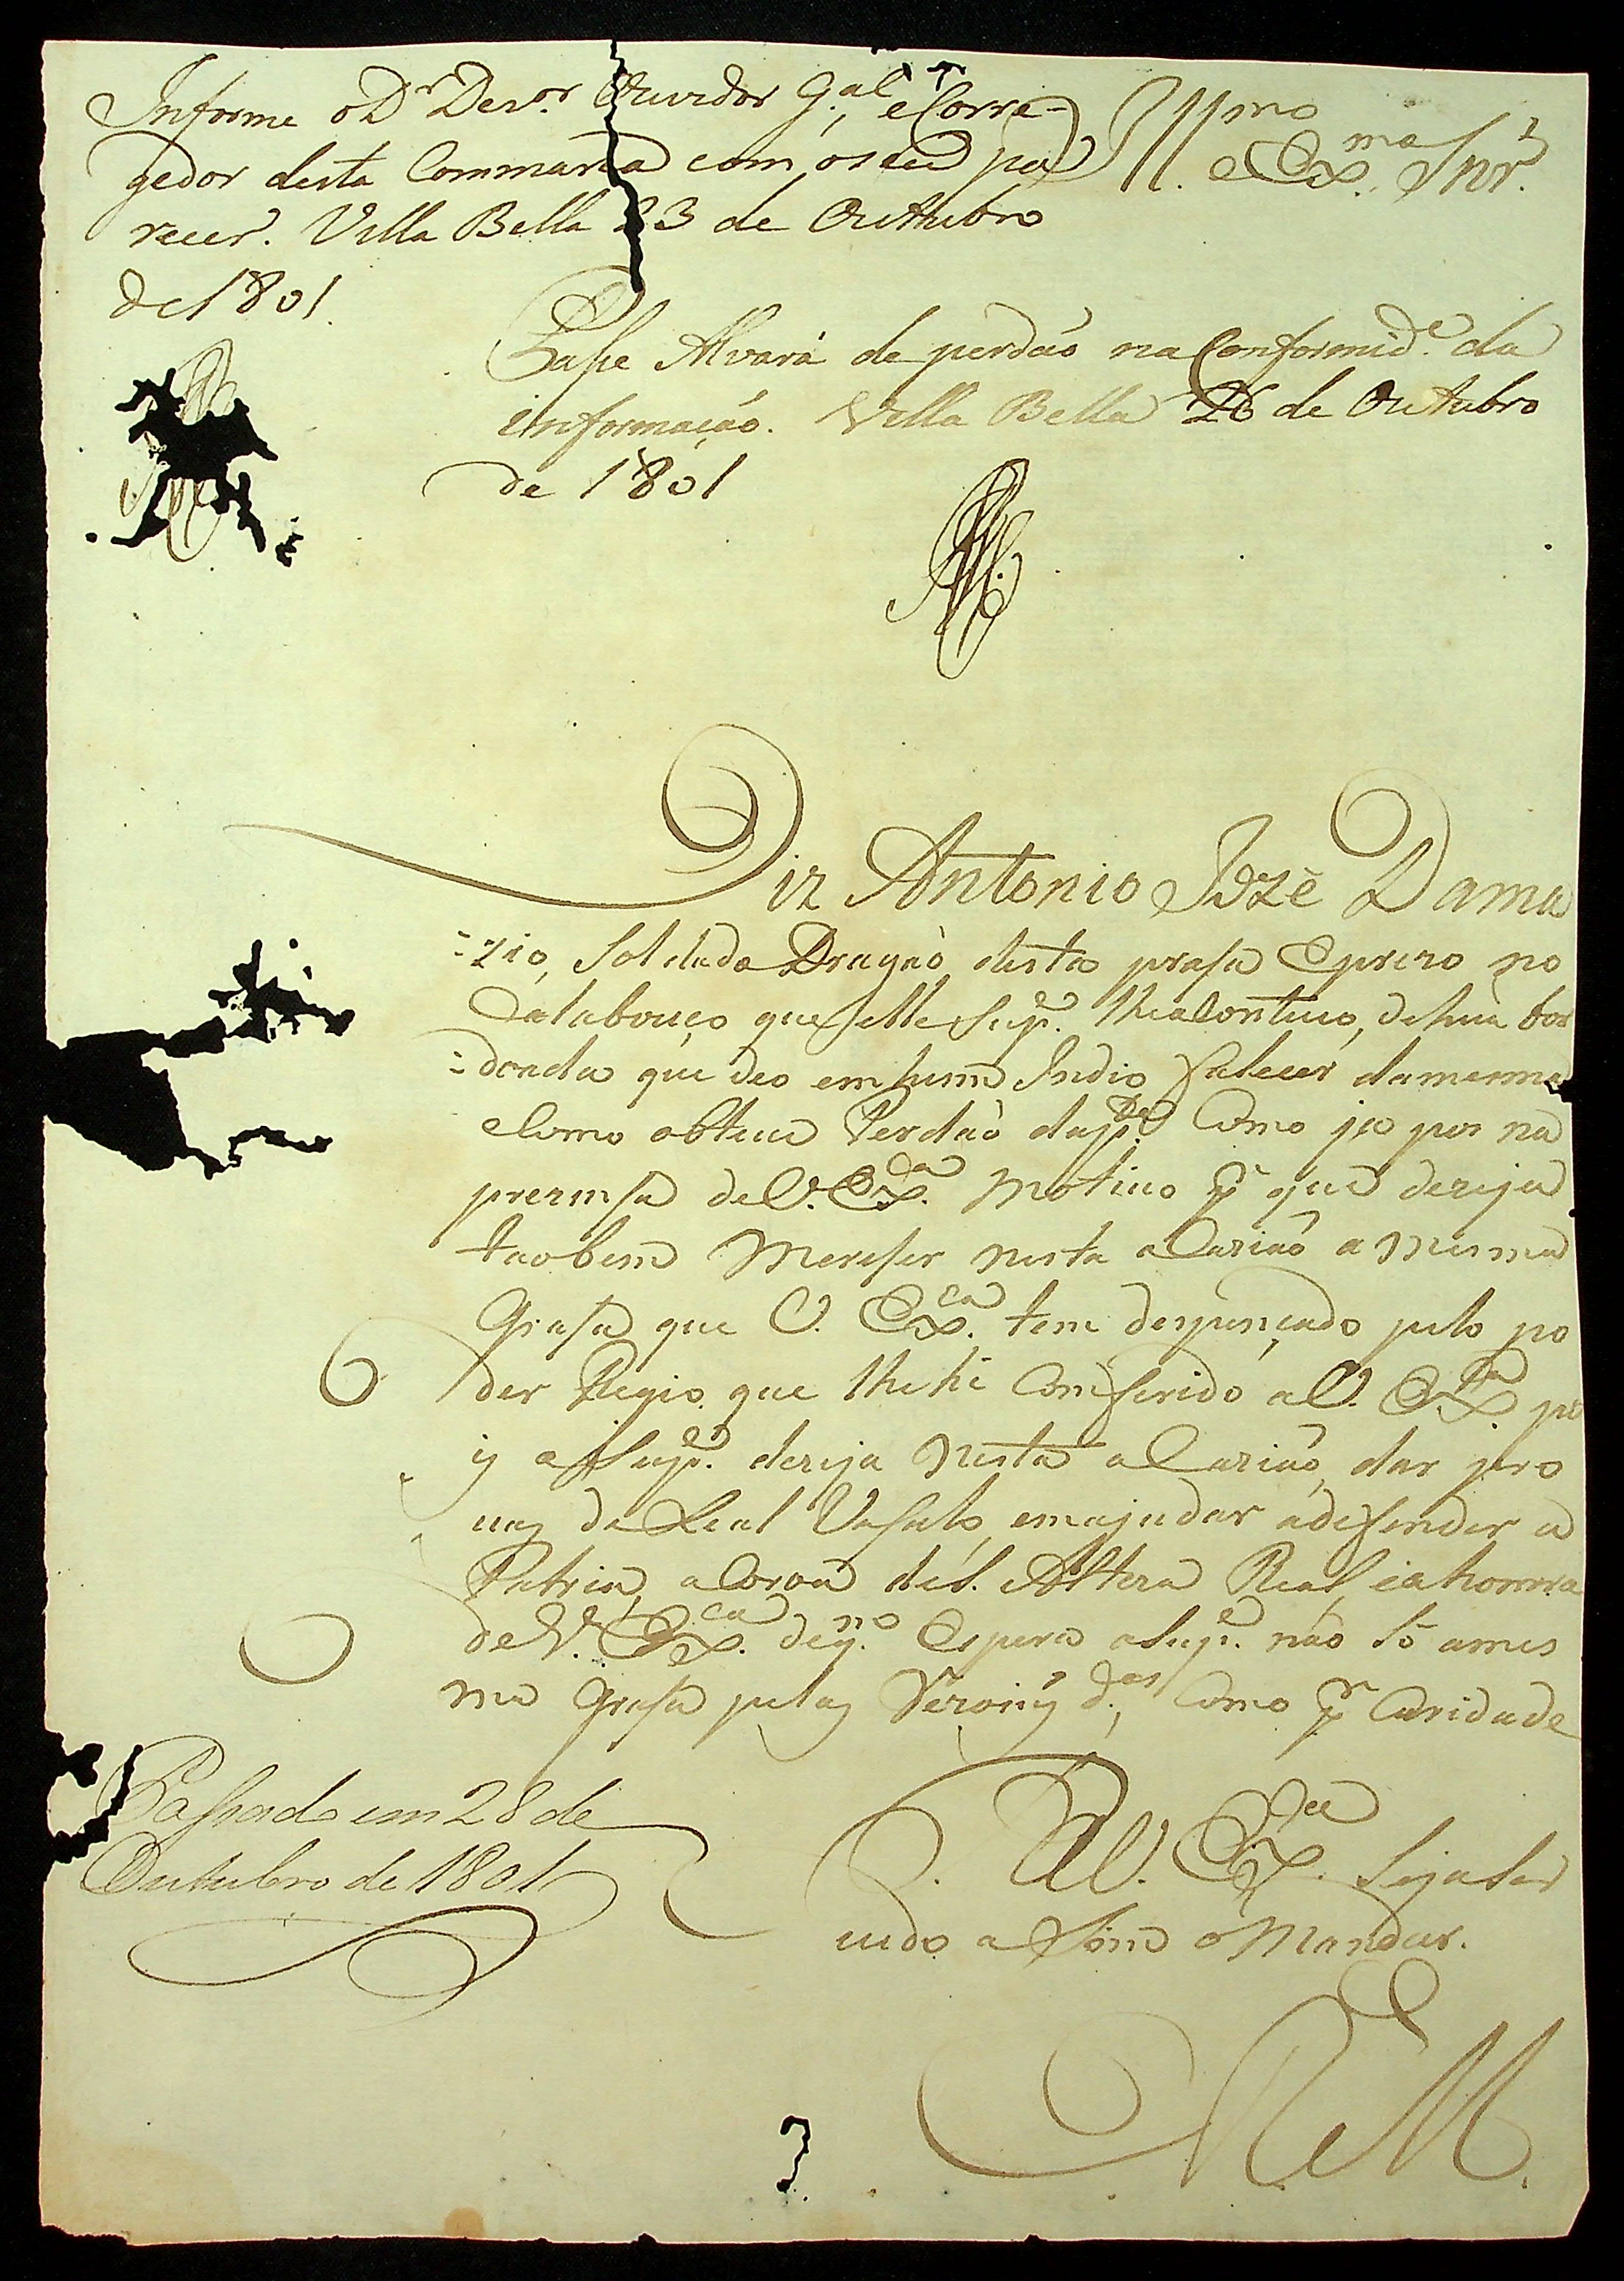 Informe o D.r Dez.or Ouvidor G.al, e Corre-
gedor desta Commarca com o seu pa
recer. Villa Bella 23 de Outubro
de 1801.
Ill.mo e Ex.mo Snr.
Passe Alvará de perdaõ na Conformid.e da
informação. Villa Bella 26 de Outubro
de 1801
Diz Antonio Jozé Dama
=zio, Soldado Dragaõ desta prasa e prezo no
Calabouço que elle Sup.e lhe a Conteuo, de hua bor
=doada que deo em hum Indio falecer da mesma
e Como obteue Perdaõ da p.te Como ja pos na
prezinsa de V. Ex.ca Motiuo p.r que dezeja
taobem Mereser nesta aCaziaõ a Mesma
Grasa que V. Ex.ca tem despençado pelo po
der Regio que lhe hé Conferido a V. Ex.ca po
is o Sup.e dezeja Nesta aCaziaõ, dar pro
uas de Leal Vasalo, em ajudar a defender a
Patria, a Coroa de S. Alteza Real, e a honrra
de V. Ex.ca de q.m Espera o Sup.e não Só a mes
ma Grasa pelas Rezoins d.as, Como p.r Caridade
P. A V. Ex.ca Seja Ser
uido a Sim o Mandar.
Passado em 28 de
Outubro de 1801
E R M.